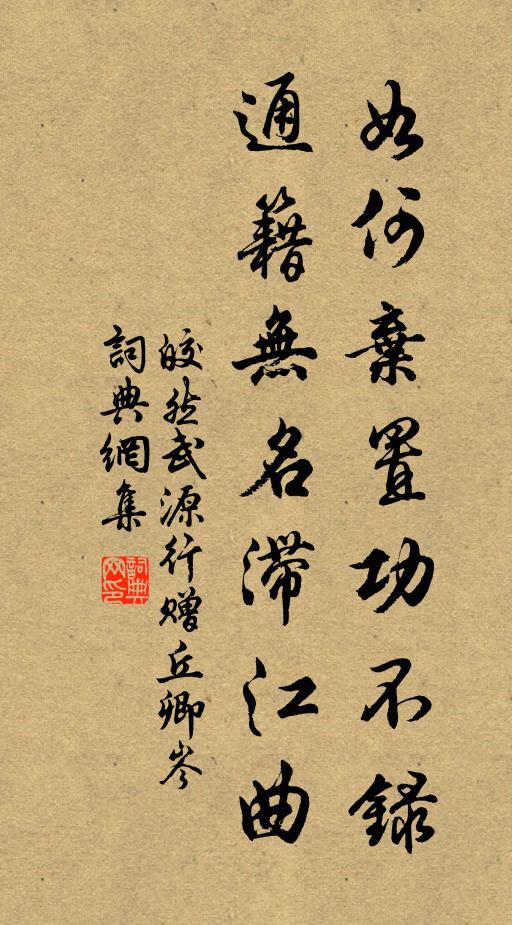 如何棄置功不錄
通籍無名滯江曲
皎然武源行赠丘卿岑
詞典網集
詞典网印